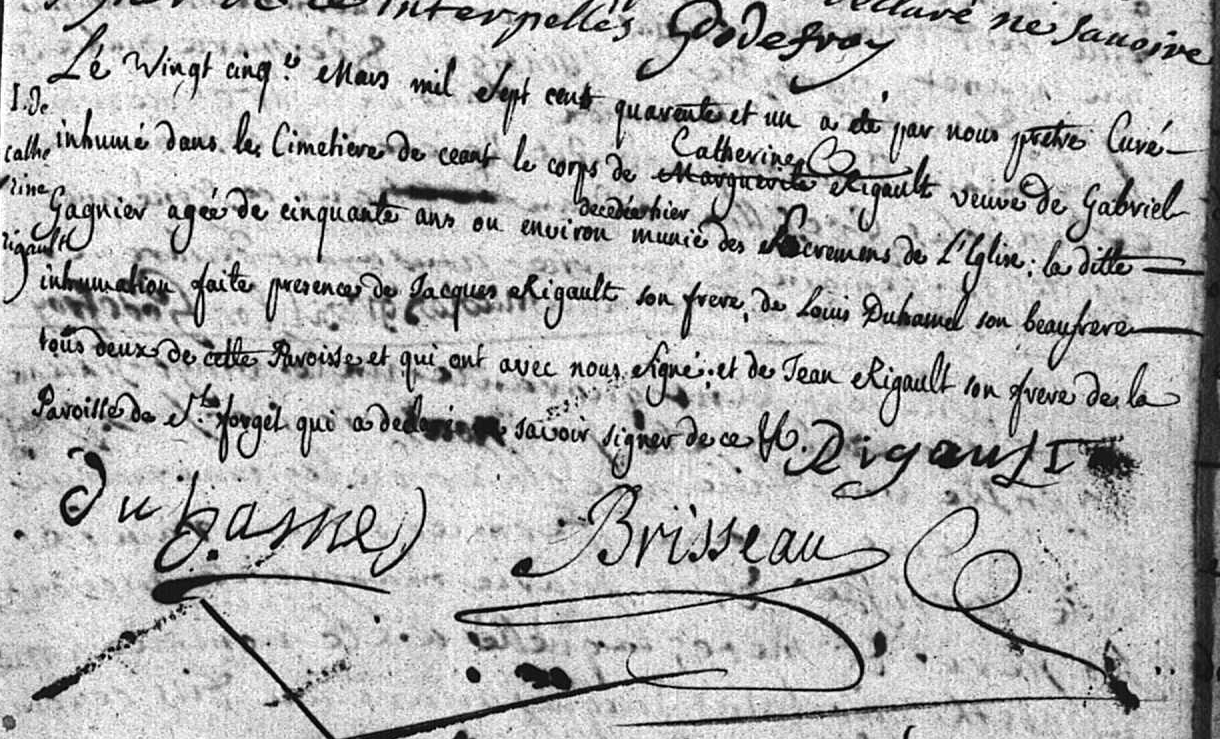 interpellés Godefroy déclaré ne savoire
Le Vingt cinq.e Mars mil sept cent quarente et un a été par nous pretre Curé
I. de
cathe
rine
rigault
inhumé dans le Cimetiere de ceant le corps de Marguerite Catherine Rigault veuve de Gabriel
Gagnier ageé de cinquante ans ou environ decedée hier munie des Sacremens de L'Eglise; la ditte
inhumation faite presence de Jacques Rigault son frere, de Louis Duhamel son beaufrere
tous deux de cette Paroisse et qui ont avec nous signé; et de Jean Rigault son frere de la
Paroisse de St. forget qui a declaré ne savoir signer de ce
Rigault
Duhamel Brisseau